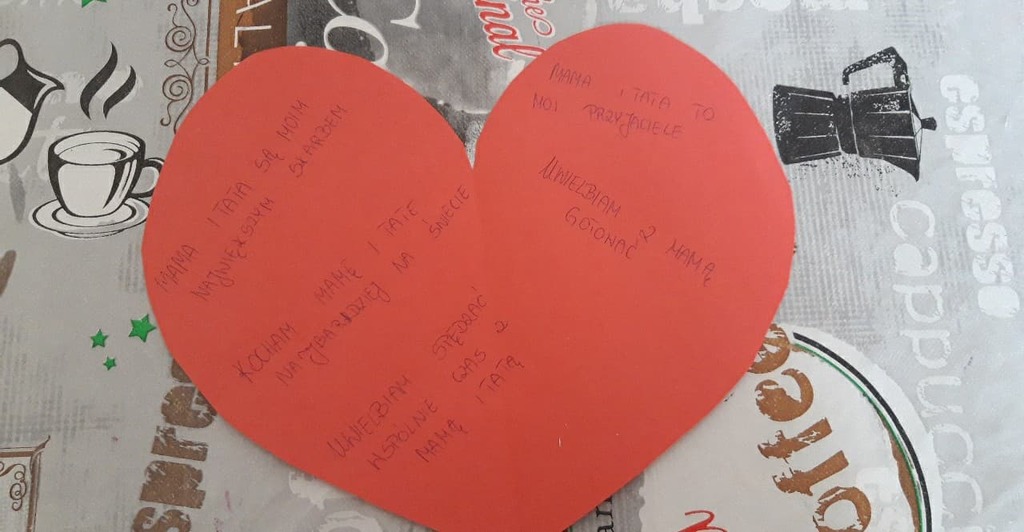 MAMA I TATA SĄ MOIM
NAJWIĘKSZYM SKARBEM
KOCHAM MAMĘ I TATE
NAJBARDZIEJ NA ŚWIECIE
UWIELBIAM SPĘDZAĆ
WSPOLNIE CZAS Z
MAMĄ I TATĄ
MAMA I TATA TO
MOI PRZYJACIELE
UWIELBIAM Z MAMĄ
GOTOWAĆ
espresso
cappucc